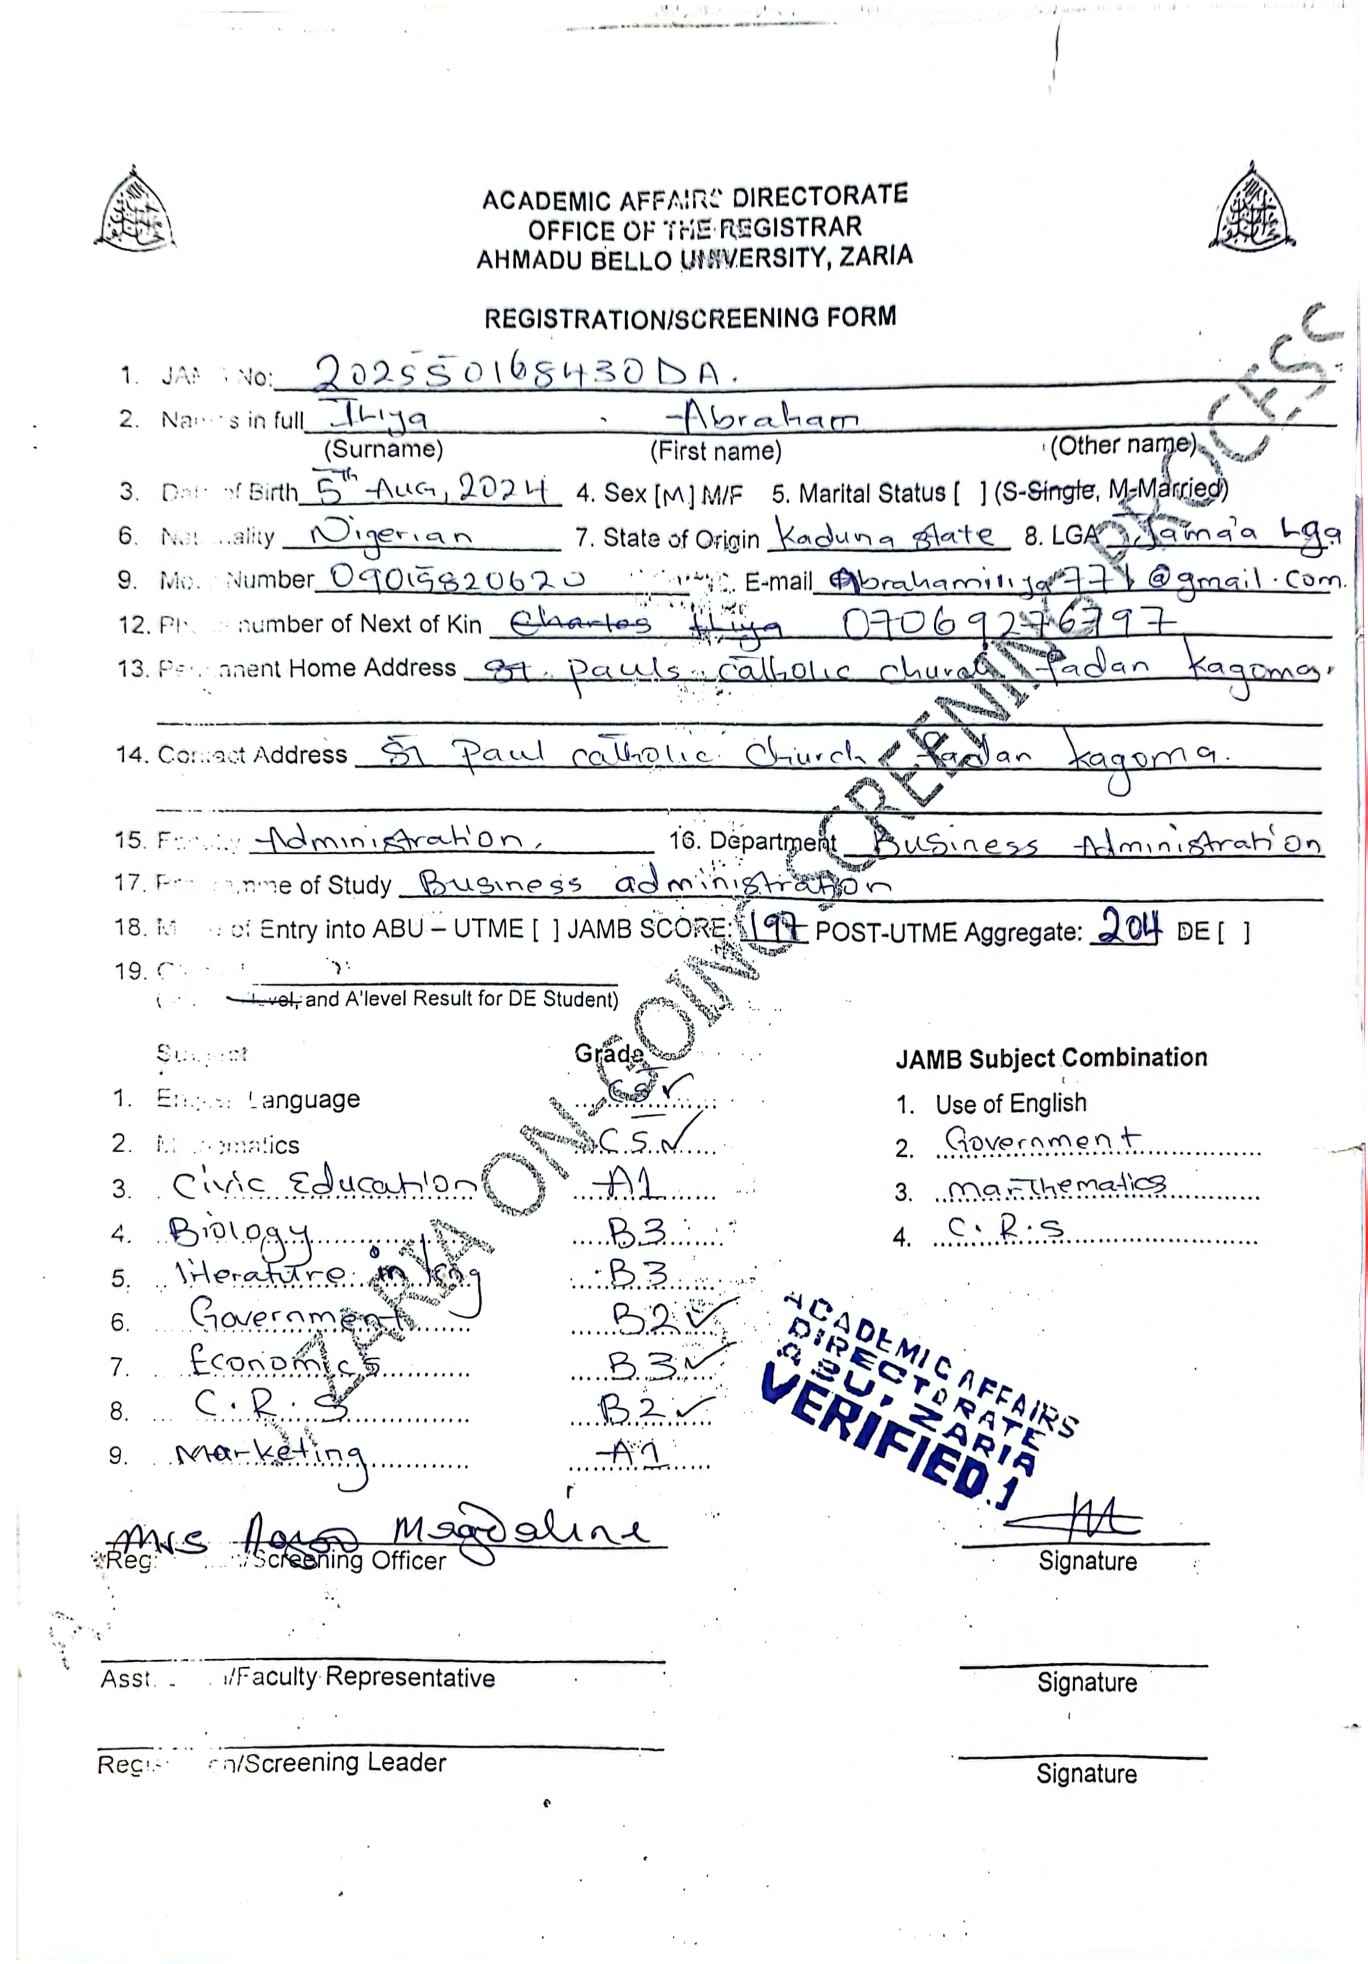 ACADEMIC AFFAIRS DIRECTORATE
OFFICE OF THE REGISTRAR
AHMADU BELLO UNIVERSITY, ZARIA
REGISTRATION/SCREENING FORM
1. JAMB No: 202550168430DA.
2. Names in full Iliya Abraham
(Surname) (First name) (Other name)
3. Date of Birth 5th Aug, 2024 4. Sex [M] M/F 5. Marital Status [ ] (S-Single, M-Married)
6. Nationality Nigerian 7. State of Origin Kaduna state 8. LGA Jama'a Lga
9. Mo. Number 09015820620 E-mail Abrahamiliya771@gmail.com.
12. Phone number of Next of Kin Charles Iliya 07069276797
13. Permanent Home Address St. Pauls catholic church fadan kagoma.
14. Contact Address St Paul catholic church fadan kagoma.
15. Faculty Administration. 16. Department Business Administration
17. Programme of Study Business administration
18. M of Entry into ABU – UTME [ ] JAMB SCORE: 197 POST-UTME Aggregate: 204 DE [ ]
19.
level, and A'level Result for DE Student)
Subject Grade JAMB Subject Combination
1. English Language C5 1. Use of English
2. Mathematics C5 2. Government
3. Civic Education A1 3. marthematics
4. Biology B3 4. C.R.S
5. literature in eng B3
6. Government B2
7. Economics B3
8. C.R.S B2
9. Marketing A1
ACADEMIC AFFAIRS
DIRECTORATE
ABU, ZARIA
VERIFIED.1
Mrs Magdaline
Reg /Screening Officer Signature
Asst. /Faculty Representative Signature
Reg n/Screening Leader Signature
ZARIA ON-GOING SCREENING PROCESS